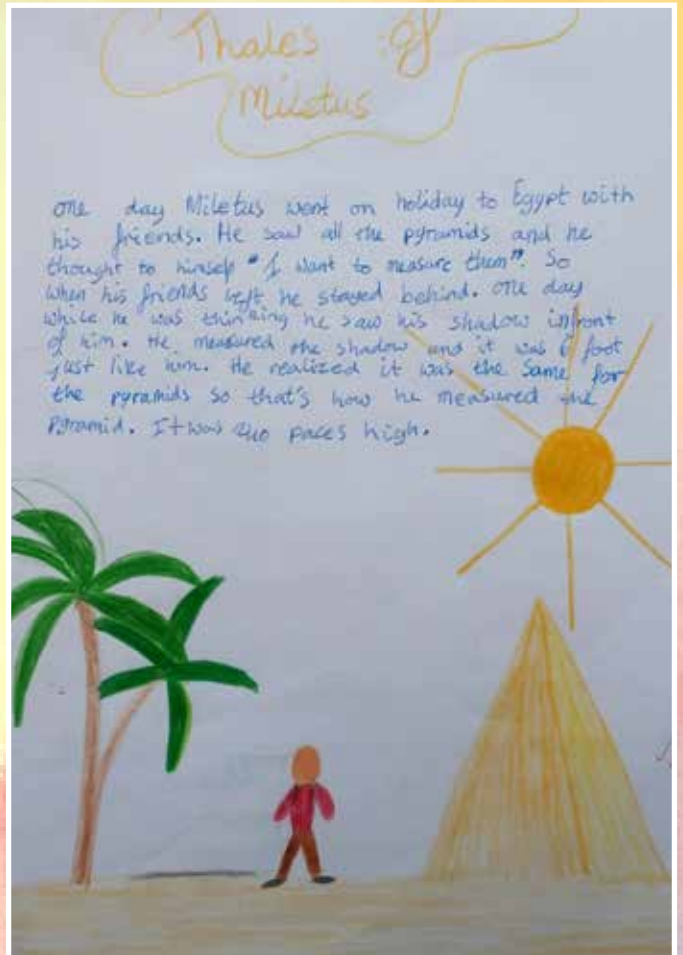 Thales of
Miletus
one day Miletus went on holiday to Egypt with
his friends. He saw all the pyramids and he
thought to himself "I want to measure them". So
when his friends left he stayed behind. one day
while he was thinking he saw his shadow infront
of him. He measured the shadow and it was 6 foot
just like him. He realized it was the same for
the pyramids so that's how he measured the
Pyramid. It was 240 paces high.